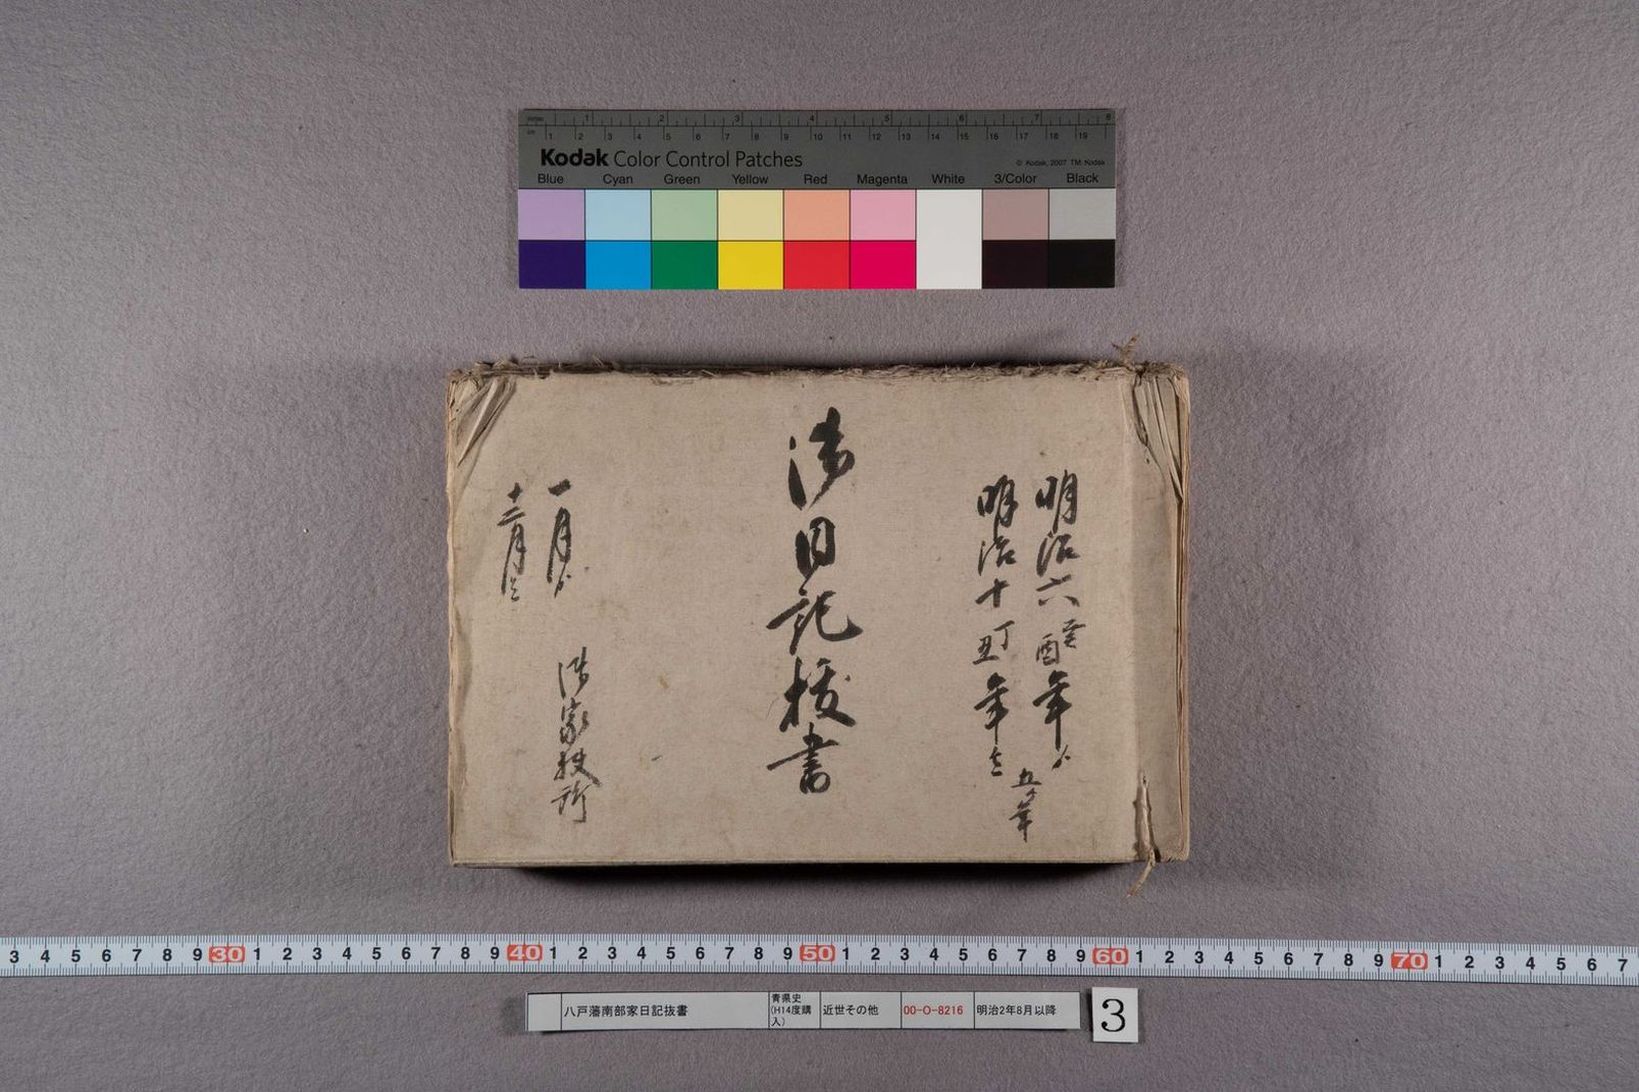 Kodak Color Control Patches
© Kodak, 2007 TM: Kodak
Blue Cyan Green Yellow Red Magenta White 3/Color Black
明治六癸酉年ゟ
明治十丁丑年迄
五ヶ年
御日記抜書
一月ゟ
十二月迄
御家扶所
3 4 5 6 7 8 9 30 1 2 3 4 5 6 7 8 9 40 1 2 3 4 5 6 7 8 9 50 1 2 3 4 5 6 7 8 9 60 1 2 3 4 5 6 7 8 9 70 1 2 3 4 5 6 7
八戸藩南部家日記抜書
青県史
(H14度購
入)
近世その他
00-O-8216
明治2年8月以降
3